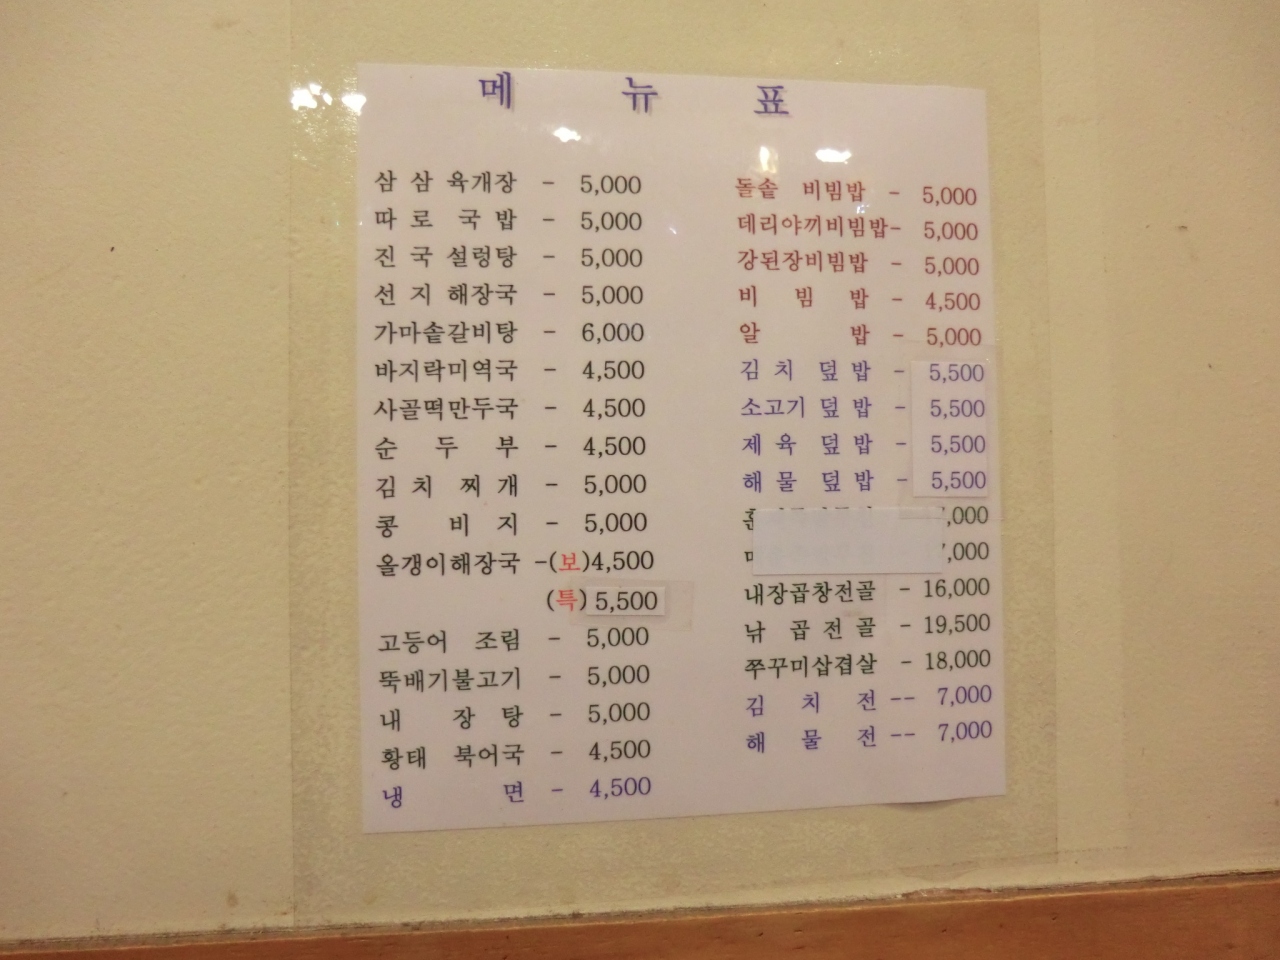 메 뉴 표
삼 삼 육개장 - 5,000
따 로 국 밥 - 5,000
진 국 설렁탕 - 5,000
선 지 해장국 - 5,000
가마솥갈비탕 - 6,000
바지락미역국 - 4,500
사골떡만두국 - 4,500
순 두 부 - 4,500
김 치 찌 개 - 5,000
콩 비 지 - 5,000
올갱이해장국 -(보)4,500
(특) 5,500
고등어 조림 - 5,000
뚝배기불고기 - 5,000
내 장 탕 - 5,000
황태 북어국 - 4,500
냉 면 - 4,500
돌솥 비빔밥 - 5,000
데리야끼비빔밥- 5,000
강된장비빔밥 - 5,000
비 빔 밥 - 4,500
알 밥 - 5,000
김 치 덮 밥 - 5,500
소고기 덮 밥 - 5,500
제 육 덮 밥 - 5,500
해 물 덮 밥 - 5,500
,000
,000
내장곱창전골 - 16,000
낚 곱 전 골 - 19,500
쭈꾸미삽겹살 - 18,000
김 치 전 -- 7,000
해 물 전 -- 7,000